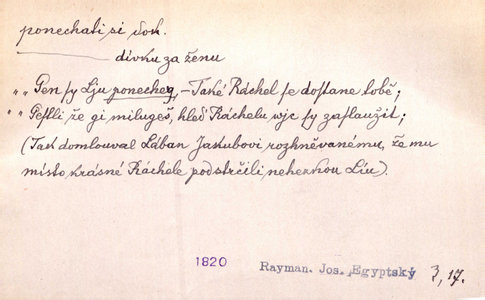 ponechati si dok.
dívku za ženu
„„Gen sy Lju ponecheg, – Také Ráchel se dostane tobě;
„„Gestli, že gi milugeš, hleď Ráchelu wjc sy zasłaužit;
(Tak domlouval Lában Jakubovi rozhněvanému, že mu
místo krásné Ráchele podstrčili nehezkou Liu).
1820 Rayman. Jos. Egyptský 3, 17.